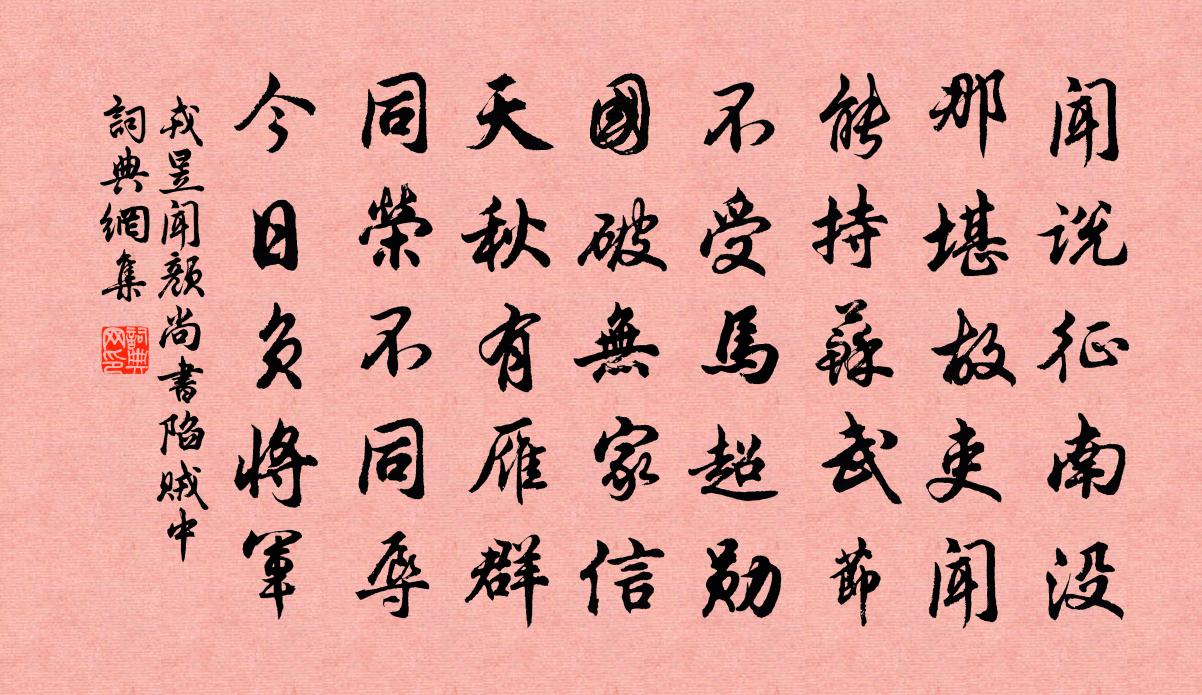 闻说征南没
那堪故吏闻
能持蘇武節
不受馬超勋
國破無家信
天秋有雁群
同榮不同辱
今日負将軍
戎昱闻颜尚書陷贼中
詞典網集
詞典网印